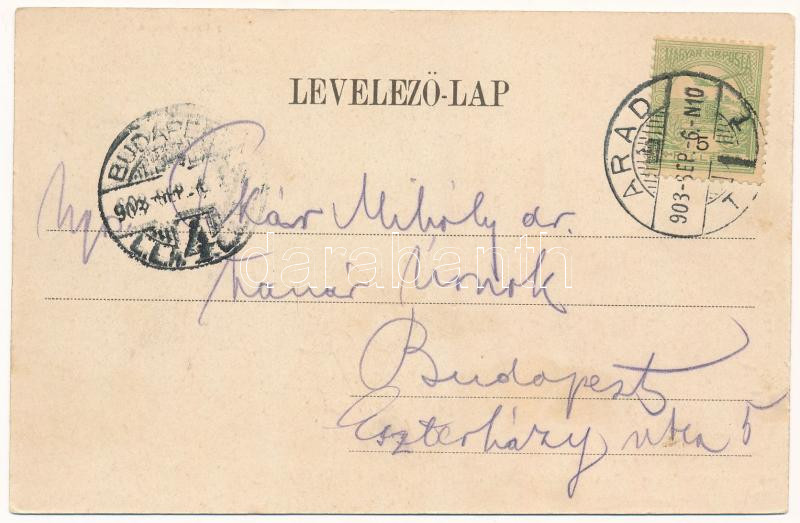 LEVELEZŐ-LAP
MAGYAR KIR. POSTA
ARAD
903-SEP.-6.-N10
BUDAPE
903-SEP
4
Mihály dr.
Tanár Urnok
Budapest
Eszterházy utca 5
darabanth